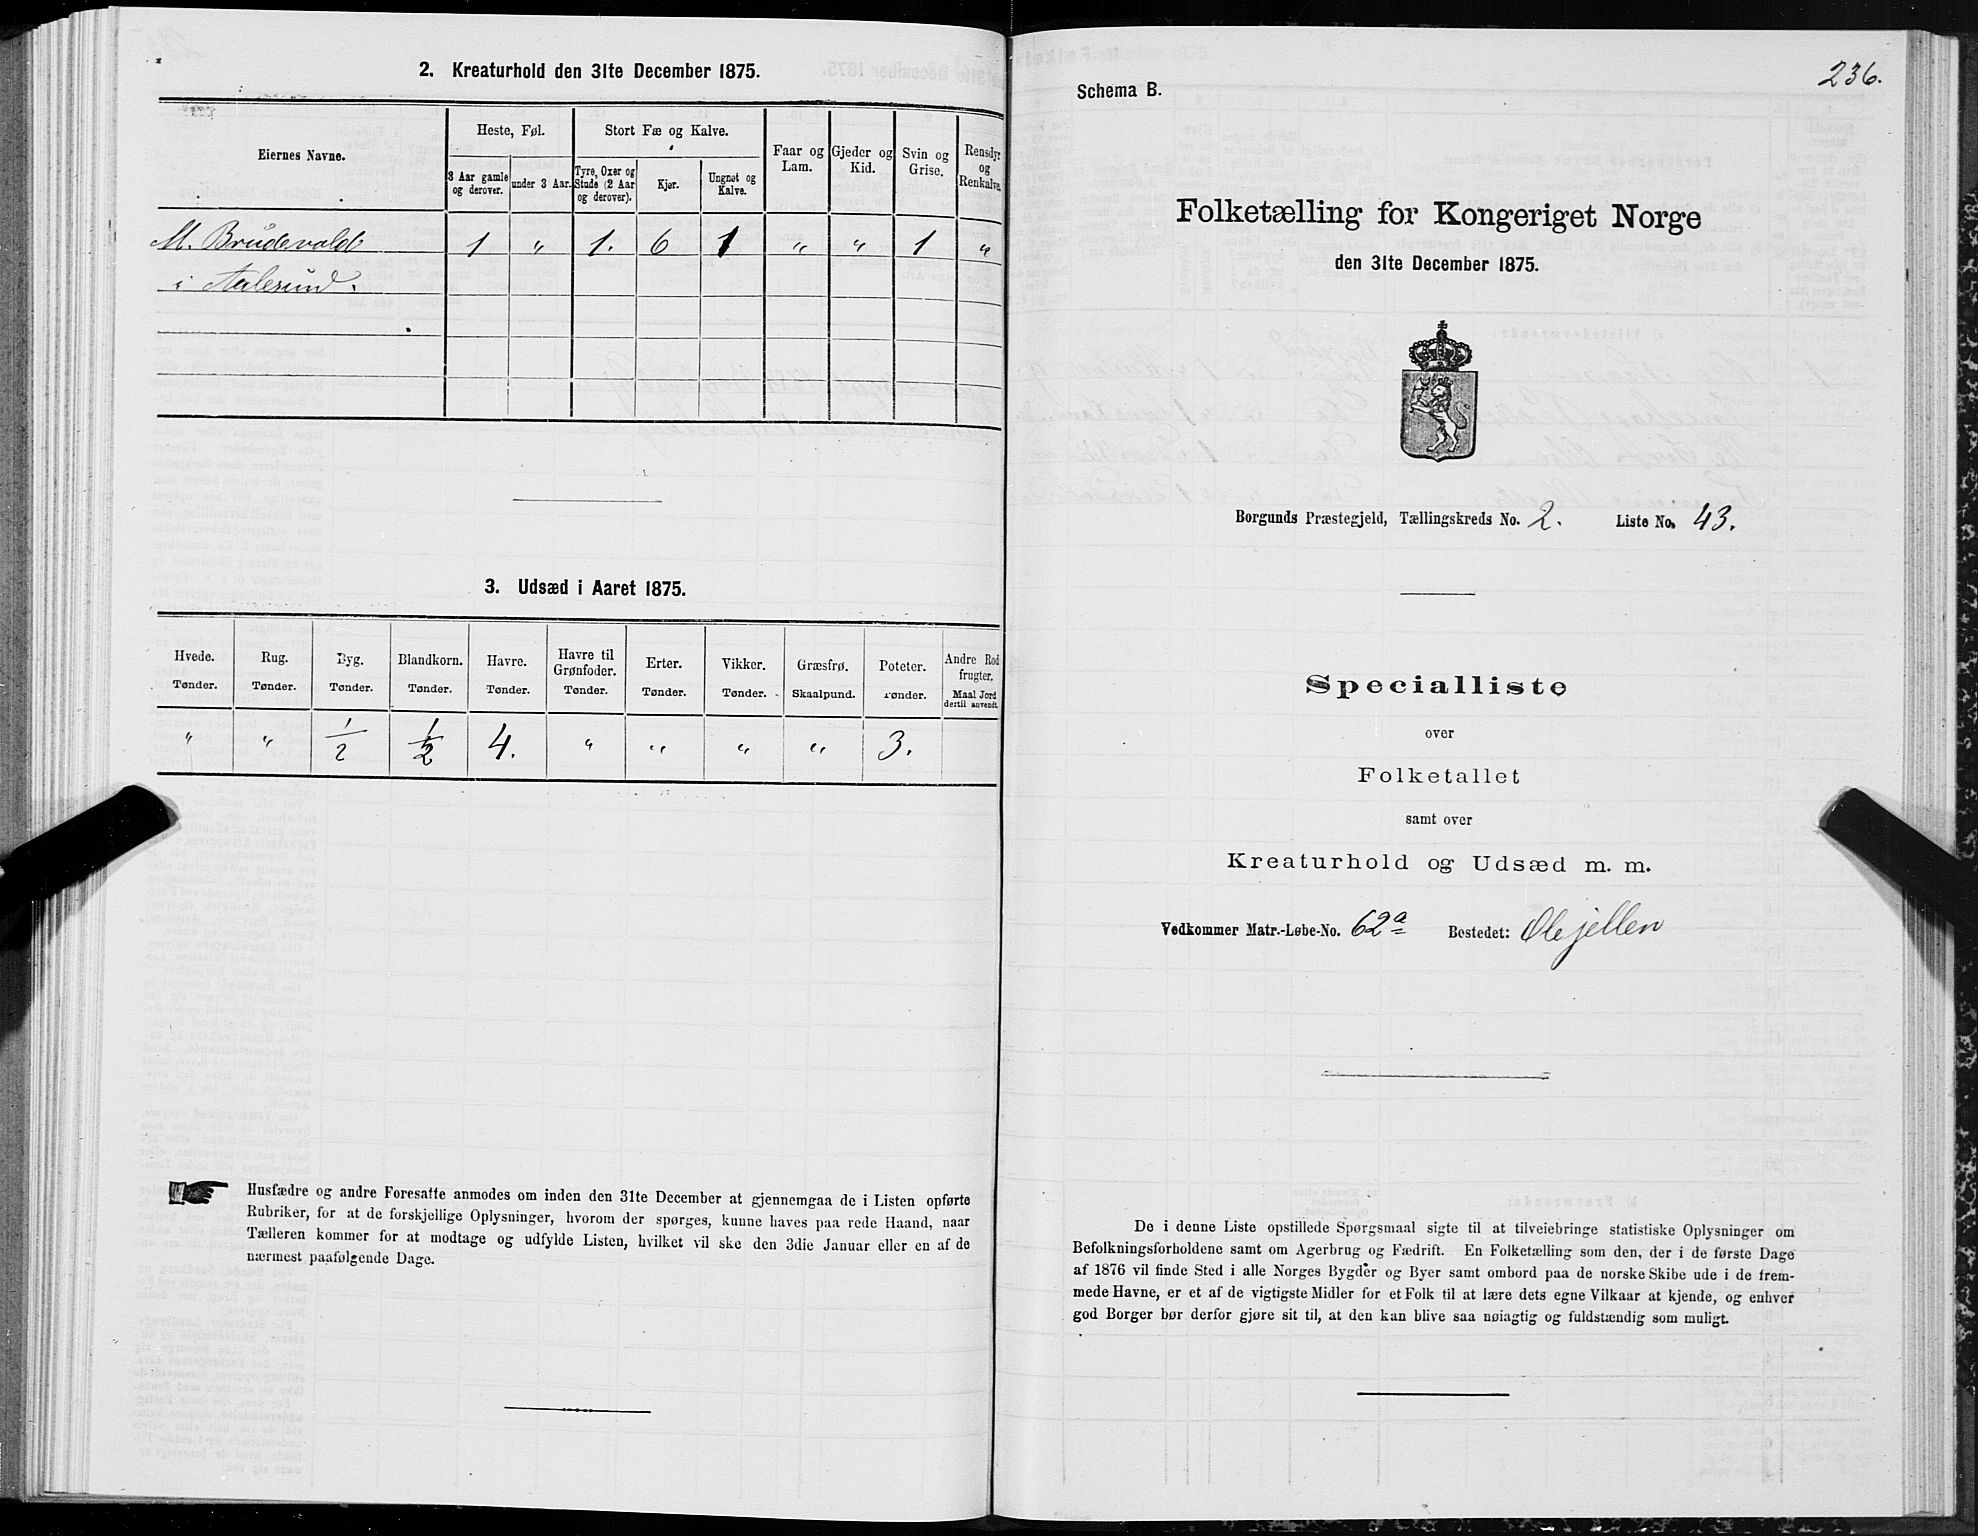 2. Kreaturhold den 31te December 1875.
Eiernes Navne.
Heste, Føl.
Stort Fæ og Kalve.
Faar og Lam.
Gjeder og Kid.
Svin og Grise.
Rensdyr og Renkalve.
3 Aar gamle og derover.
under 3 Aar.
Tyre, Oxer og Stude (2 Aar og derover).
Kjør.
Ungnøt og Kalve.
M. Brudevold 1 " 1. 6 1 " " 1 "
i Aalesund.
3. Udsæd i Aaret 1875.
Hvede. Rug. Byg. Blandkorn. Havre. Havre til Grønfoder. Erter. Vikker. Græsfrø. Poteter. Andre Rodfrugter.
Tønder. Tønder. Tønder. Tønder. Tønder. Tønder. Tønder. Tønder. Skaalpund. Tønder. Maal Jord dertil anvendt.
" " 1/2 1/2 4. " " " " 3.
Husfædre og andre Foresatte anmodes om inden den 31te December at gjennemgaa de i Listen opførte
Rubriker, for at de forskjellige Oplysninger, hvorom der spørges, kunne haves paa rede Haand, naar
Tælleren kommer for at modtage og udfylde Listen, hvilket vil ske den 3die Januar eller en af de
nærmest paafølgende Dage.
236.
Schema B.
Folketælling for Kongeriget Norge
den 31te December 1875.
Borgunds Præstegjeld, Tællingskreds No. 2. Liste No. 43.
Specialliste
over
Folketallet
samt over
Kreaturhold og Udsæd m. m.
Vedkommer Matr.-Løbe-No. 62a Bostedet: Olejellen
De i denne Liste opstillede Spørgsmaal sigte til at tilveiebringe statistiske Oplysninger om
Befolkningsforholdene samt om Agerbrug og Fædrift. En Folketælling som den, der i de første Dage
af 1876 vil finde Sted i alle Norges Bygder og Byer samt ombord paa de norske Skibe ude i de frem-
mede Havne, er et af de vigtigste Midler for et Folk til at lære dets egne Vilkaar at kjende, og enhver
god Borger bør derfor gjøre sit til, at den kan blive saa nøiagtig og fuldstændig som muligt.